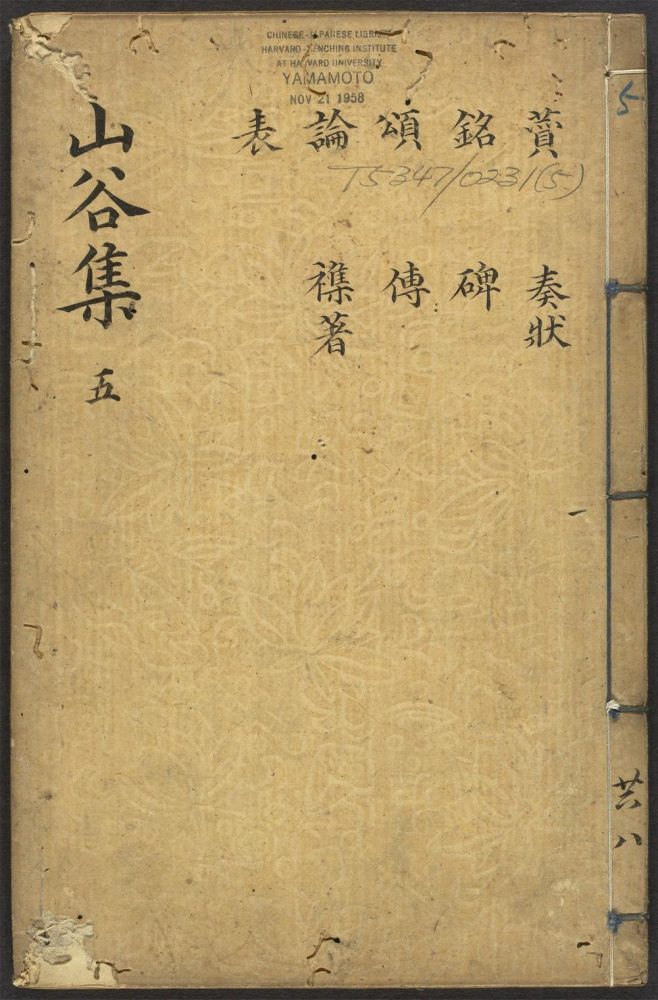 CHINESE-JAPANESE LIBRARY
HARVARD-YENCHING INSTITUTE
AT HARVARD UNIVERSITY
YAMAMOTO
NOV 21 1958
5
T5347/0231(5)
賛 奏狀
銘 碑
頌 傳
論 襍著
表
山谷集 五
共八